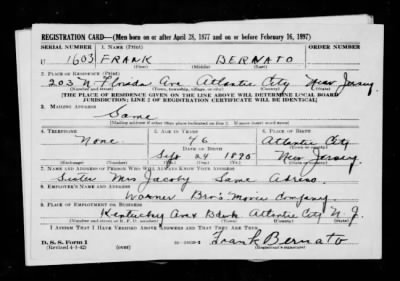 REGISTRATION CARD—(Men born on or after April 28, 1877 and on or before February 16, 1897)
SERIAL NUMBER 1. NAME (Print) ORDER NUMBER
U 1603 FRANK BERNATO
(First) (Middle) (Last)
2. PLACE OF RESIDENCE (Print)
203 N. Florida Ave Atlantic City New Jersey
(Number and street) (Town, township, village, or city) (County) (State)
[THE PLACE OF RESIDENCE GIVEN ON THE LINE ABOVE WILL DETERMINE LOCAL BOARD
JURISDICTION; LINE 2 OF REGISTRATION CERTIFICATE WILL BE IDENTICAL]
3. MAILING ADDRESS
Same
[Mailing address if other than place indicated on line 2. If same insert word same]
4. TELEPHONE 5. AGE IN YEARS 6. PLACE OF BIRTH
None 46 Atlantic City
DATE OF BIRTH (Town or county)
Sept 24 1895 New Jersey
(Mo.) (Day) (Yr.) (State or country)
7. NAME AND ADDRESS OF PERSON WHO WILL ALWAYS KNOW YOUR ADDRESS
Sister Mrs Jacoby Same Adress
8. EMPLOYER'S NAME AND ADDRESS
Warner Bro's Movie Company
9. PLACE OF EMPLOYMENT OR BUSINESS
Kentucky Ave & Bank Atlantic City N. J.
(Number and street or R. F. D. number) (Town) (County) (State)
I AFFIRM THAT I HAVE VERIFIED ABOVE ANSWERS AND THAT THEY ARE TRUE.
D. S. S. Form 1 Frank Bernato
(Revised 4-1-42) (over)